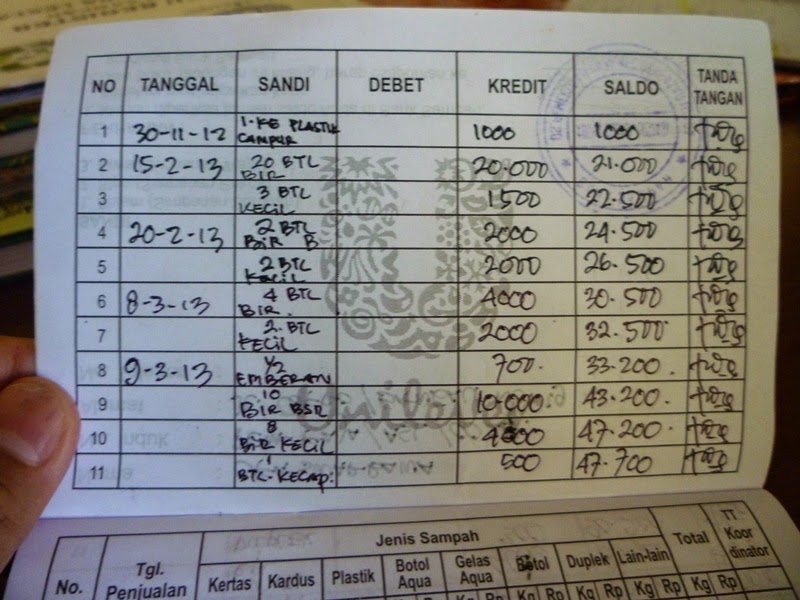 NO TANGGAL SANDI DEBET KREDIT SALDO TANDA TANGAN
1 30-11-12 1 KG PLASTIK CAMPUR 1000 1000
2 15-2-13 20 BTL BIR 20.000 21.000
3 3 BTL KECIL 1500 22.500
4 20-2-13 2 BTL BIR B 2000 24.500
5 2 BTL Kecil 2000 26.500
6 8-3-13 4 BTL BIR. 4000 30.500
7 2 BTL KECIL 2000 32.500
8 9-3-13 1/2 EMBERAN 700. 33.200.
9 10 BIR BSR 10.000. 43.200.
10 8 BIR KECIL 4000 47.200
11 1 BTL. KECAP. 500 47.700
Unilever
Jenis Sampah
No. Tgl. Penjualan Kertas Kardus Plastik Botol Aqua Gelas Aqua Botol Duplek Lain-lain Total TT Koor dinator
Kg Rp Kg Rp Kg Rp